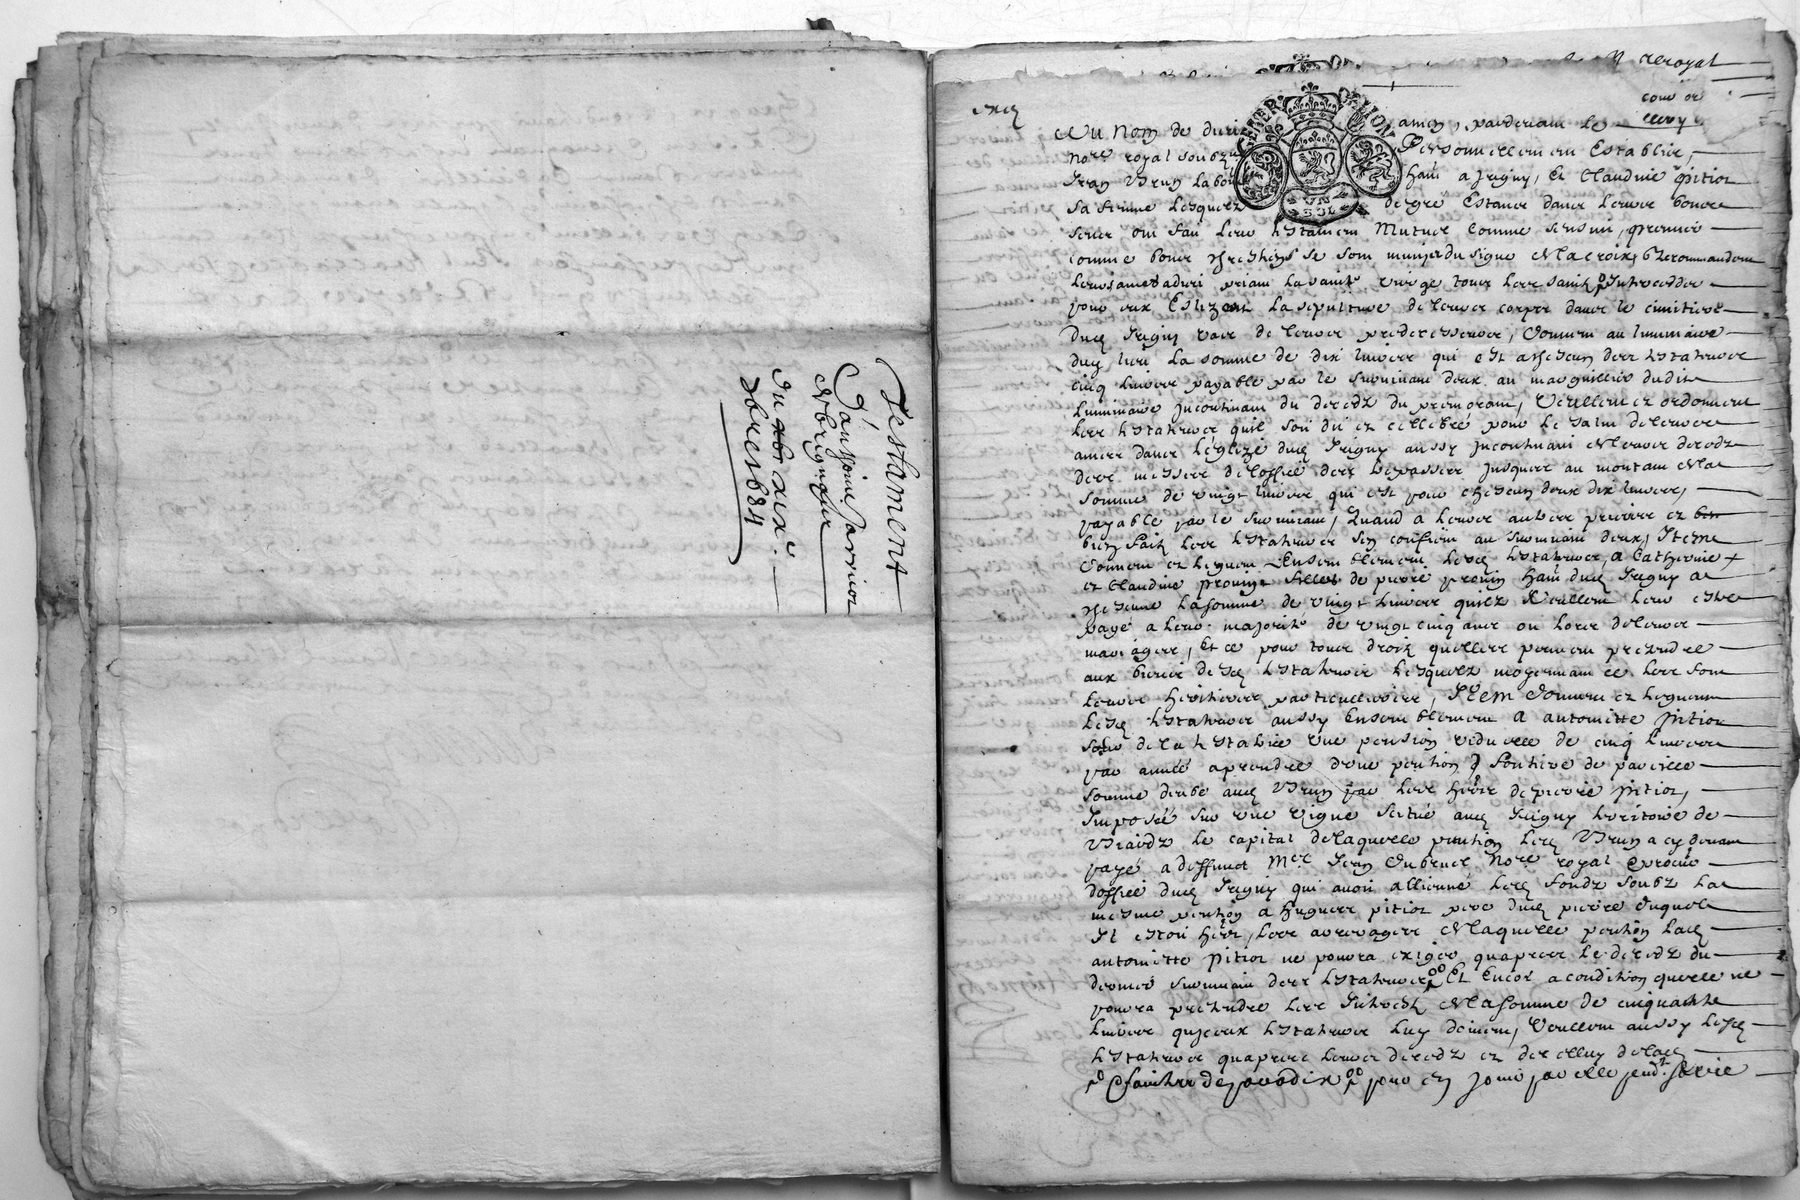 Testament
d'anthoine Jarricot
de brignais
du xbre 1684
royal
Au Nom de dieu amen, pardevant le
No.re royal soubz.né Personnellement Establis,
Jean Brun labo.r hãnt a Jrigny, Et Claudine pitiot
Sa femme Lesquelz de gré Estants dans Leurs bons
sens ont fait Leur testament Mutuel Comme sensuit, premier
comme bons chrestiens se sont munis du signe de la croix, & recommandent
Leurs ames a dieu priant la sainte vierge tous les saints Jnterceder
pour eux Eslizent La sepulture de leurs corps dans le cimitiere
dud Jrigny vase de leurs predecesseurs, donnent au luminaire
dud lieu La somme de dix livres qui est a chescun des testateurs
cinq livres payable par le survivant deux au marguillier dudit
Luminaire Jncontinant du decedz du premorant, Veullent et ordonnent
Les testateurs quil soit dit et cellebré pour Le salut de leurs
ames dans Léglize dud Jrigny aussy Jncontinant de leurs decedz
des messes de loffice des trepassés jusques au montant de la
somme de vingt livres qui est pour chescun deux dix livres,
payable par le survivant, Quand a Leurs autres prieres et
bien faits Les testateurs sen confient au survivant deux, Item
donnent et leguent Ensemblement Lesd testateurs, a Catherine
et Claudine pronin filles de pierre pronin hãnt dud Jrigny a
chescune La somme de vingt Livres quilz veullent Leur estre
payé a leur majorité de vingt cinq ans ou lors de leurs
mariages, Et ce pour tous droits quelles peuvent pretendre
aux biens desd testateurs Lesquelz moyennant ce les font
Leurs heritieres particullieres, Item donnent et Leguent
Lesd testateurs aussy Ensemblement A antoinette pitiot
seur de la testatrice Une pension viduelle de cinq Livres
par année aprendre dune pention fontiere de pareille
somme deube aud Brun par les hoirs de pierre pitiot,
Jmposée sur une vigne scitué aud Jrigny territoire de
le capital de laquelle pention led Brun a cy devant
payé a deffunct M.re Jean dubreuil No.re royal & procur
doffice dud Jrigny qui avoit allienné led fondz soubz la
mesme pention a hugues pitiot pere dud pierre duquel
Jl estoit her.r, Les arrerages de laquelle pention Lad
antoinette pitiot ne pourra exiger quapres le decedz du
dernier survivant des testateurs Et Encor a condition quelle ne
pourra pretendre les Jnterestz de la somme de cinquante
Livres quiceux testateurs Luy doivent, Veullent aussy Lesd
testateurs quapres Leurs decedz et de celluy de lad
pour en jouir par elle pend.t sa vie